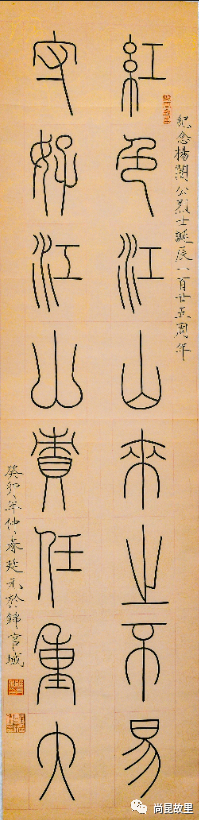 紀念楊闇公烈士誕辰一百廿五周年
紅色江山來之不易
守好江山責任重大
癸卯年仲春於錦官城
尚昆故里